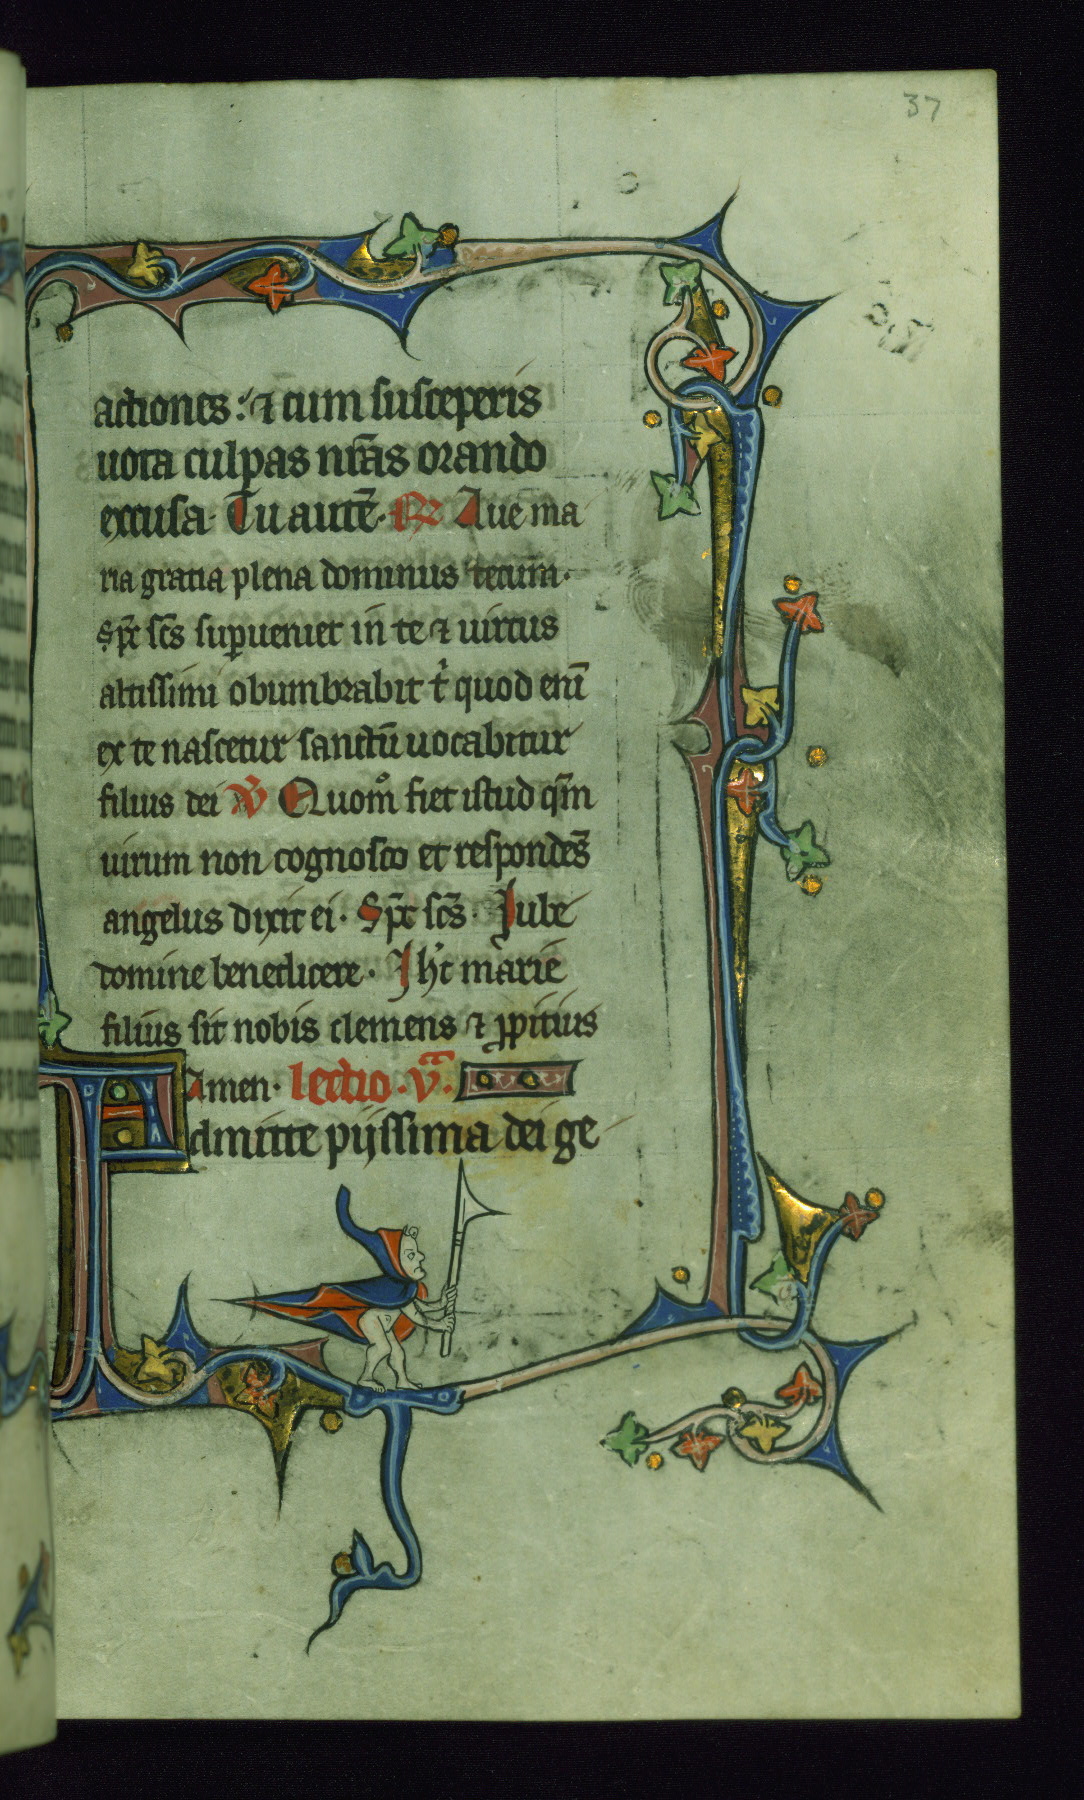 37
actiones: ⁊ cum susceperis
uota culpas nr̃as orando
excusa· Tu autẽ· R Aue ma
ria gratia plena dominus tecum·
Sp̃c sc̃s sup̱ueniet in te ⁊ uirtus
altissimi obumbrabit tⁱ quod eni̅
ex te nascetur sanctũ uocabitur
filius dei V̉ Quom̊ fiet istud qm̃
uirum non cognosco et respondẽs
angelus dixit ei· Sp̃c sc̃s· Iube
domine benedicere· Ihc̉ marie
filius sit nobis clemens ⁊ ꝓpitius
Amen· lectio·v̅ᵃ·
Admitte piissima dei ge